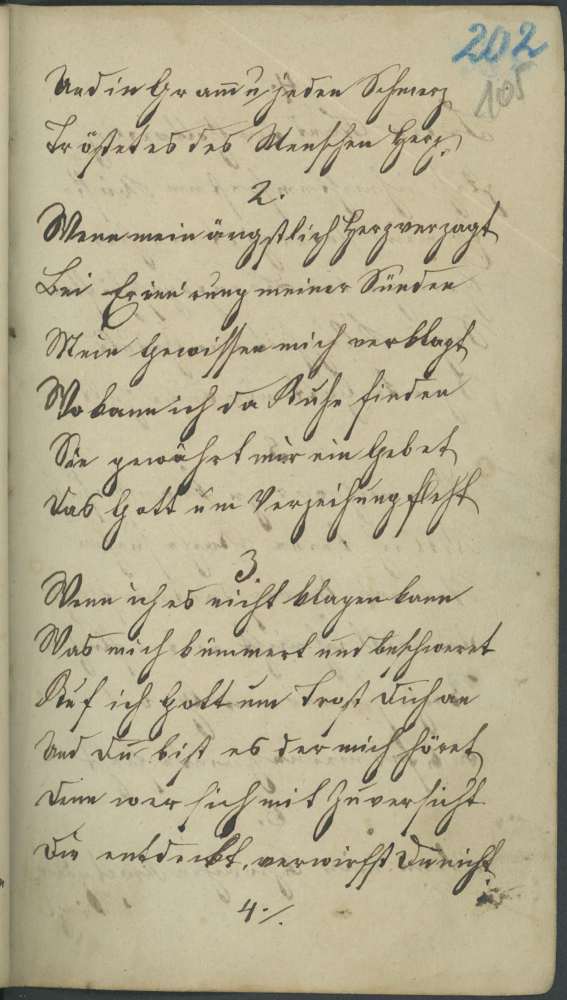 202
105
Und in Gram u. jeden Schmerz
Tröstet es des Menschen Herz.
2.
Wenn mein ängstlich Herz verzagt
Bei Erinerung meiner Sünden
Mein Gewissen mich verklagt
Wo kann ich da Ruhe finden
Sie gewährt mir ein Gebet
Das Gott um Verzeihung fleht
3
Wenn ich es nicht klagen kann
Was mich kümmert und beschweret
Ruf ich Gott um Trost dich an
Und du bist es der mich höret
Denn wer sich mit Zuversicht
Dir entdeckt, verwirfst du nicht
4./.